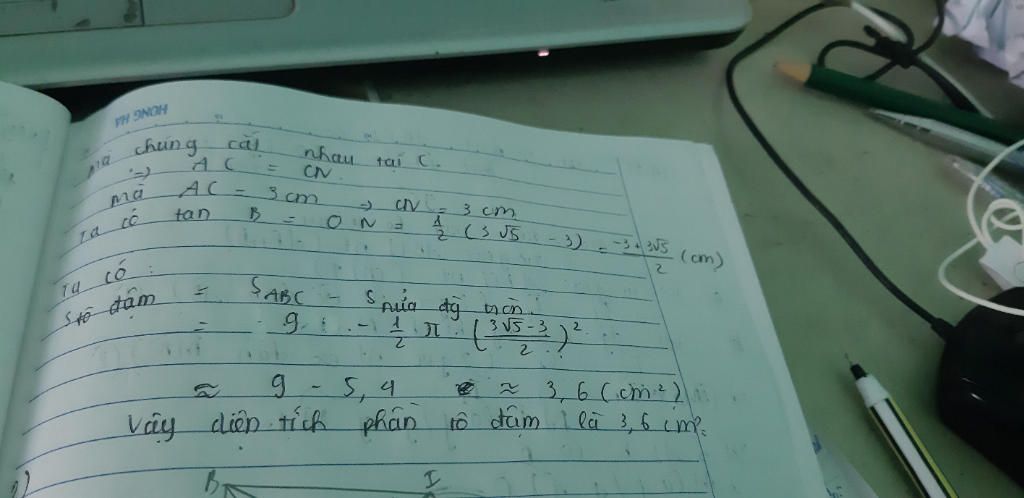 HONG HA
mà chúng cắt nhau tại C.
→ AC = CN.
mà AC = 3cm → CN = 3cm
Ta có tan B = ON = 1/2 (3√5 - 3) = (-3+3√5)/2 (cm)
Ta có :
S tô đậm = S ABC - S nửa đg tròn.
= 9 - 1/2 π ((3√5-3)/2)²
≈ 9 - 5,4 ≈ 3,6 (cm²)
Vậy diện tích phần tô đậm là 3,6 cm².
B I